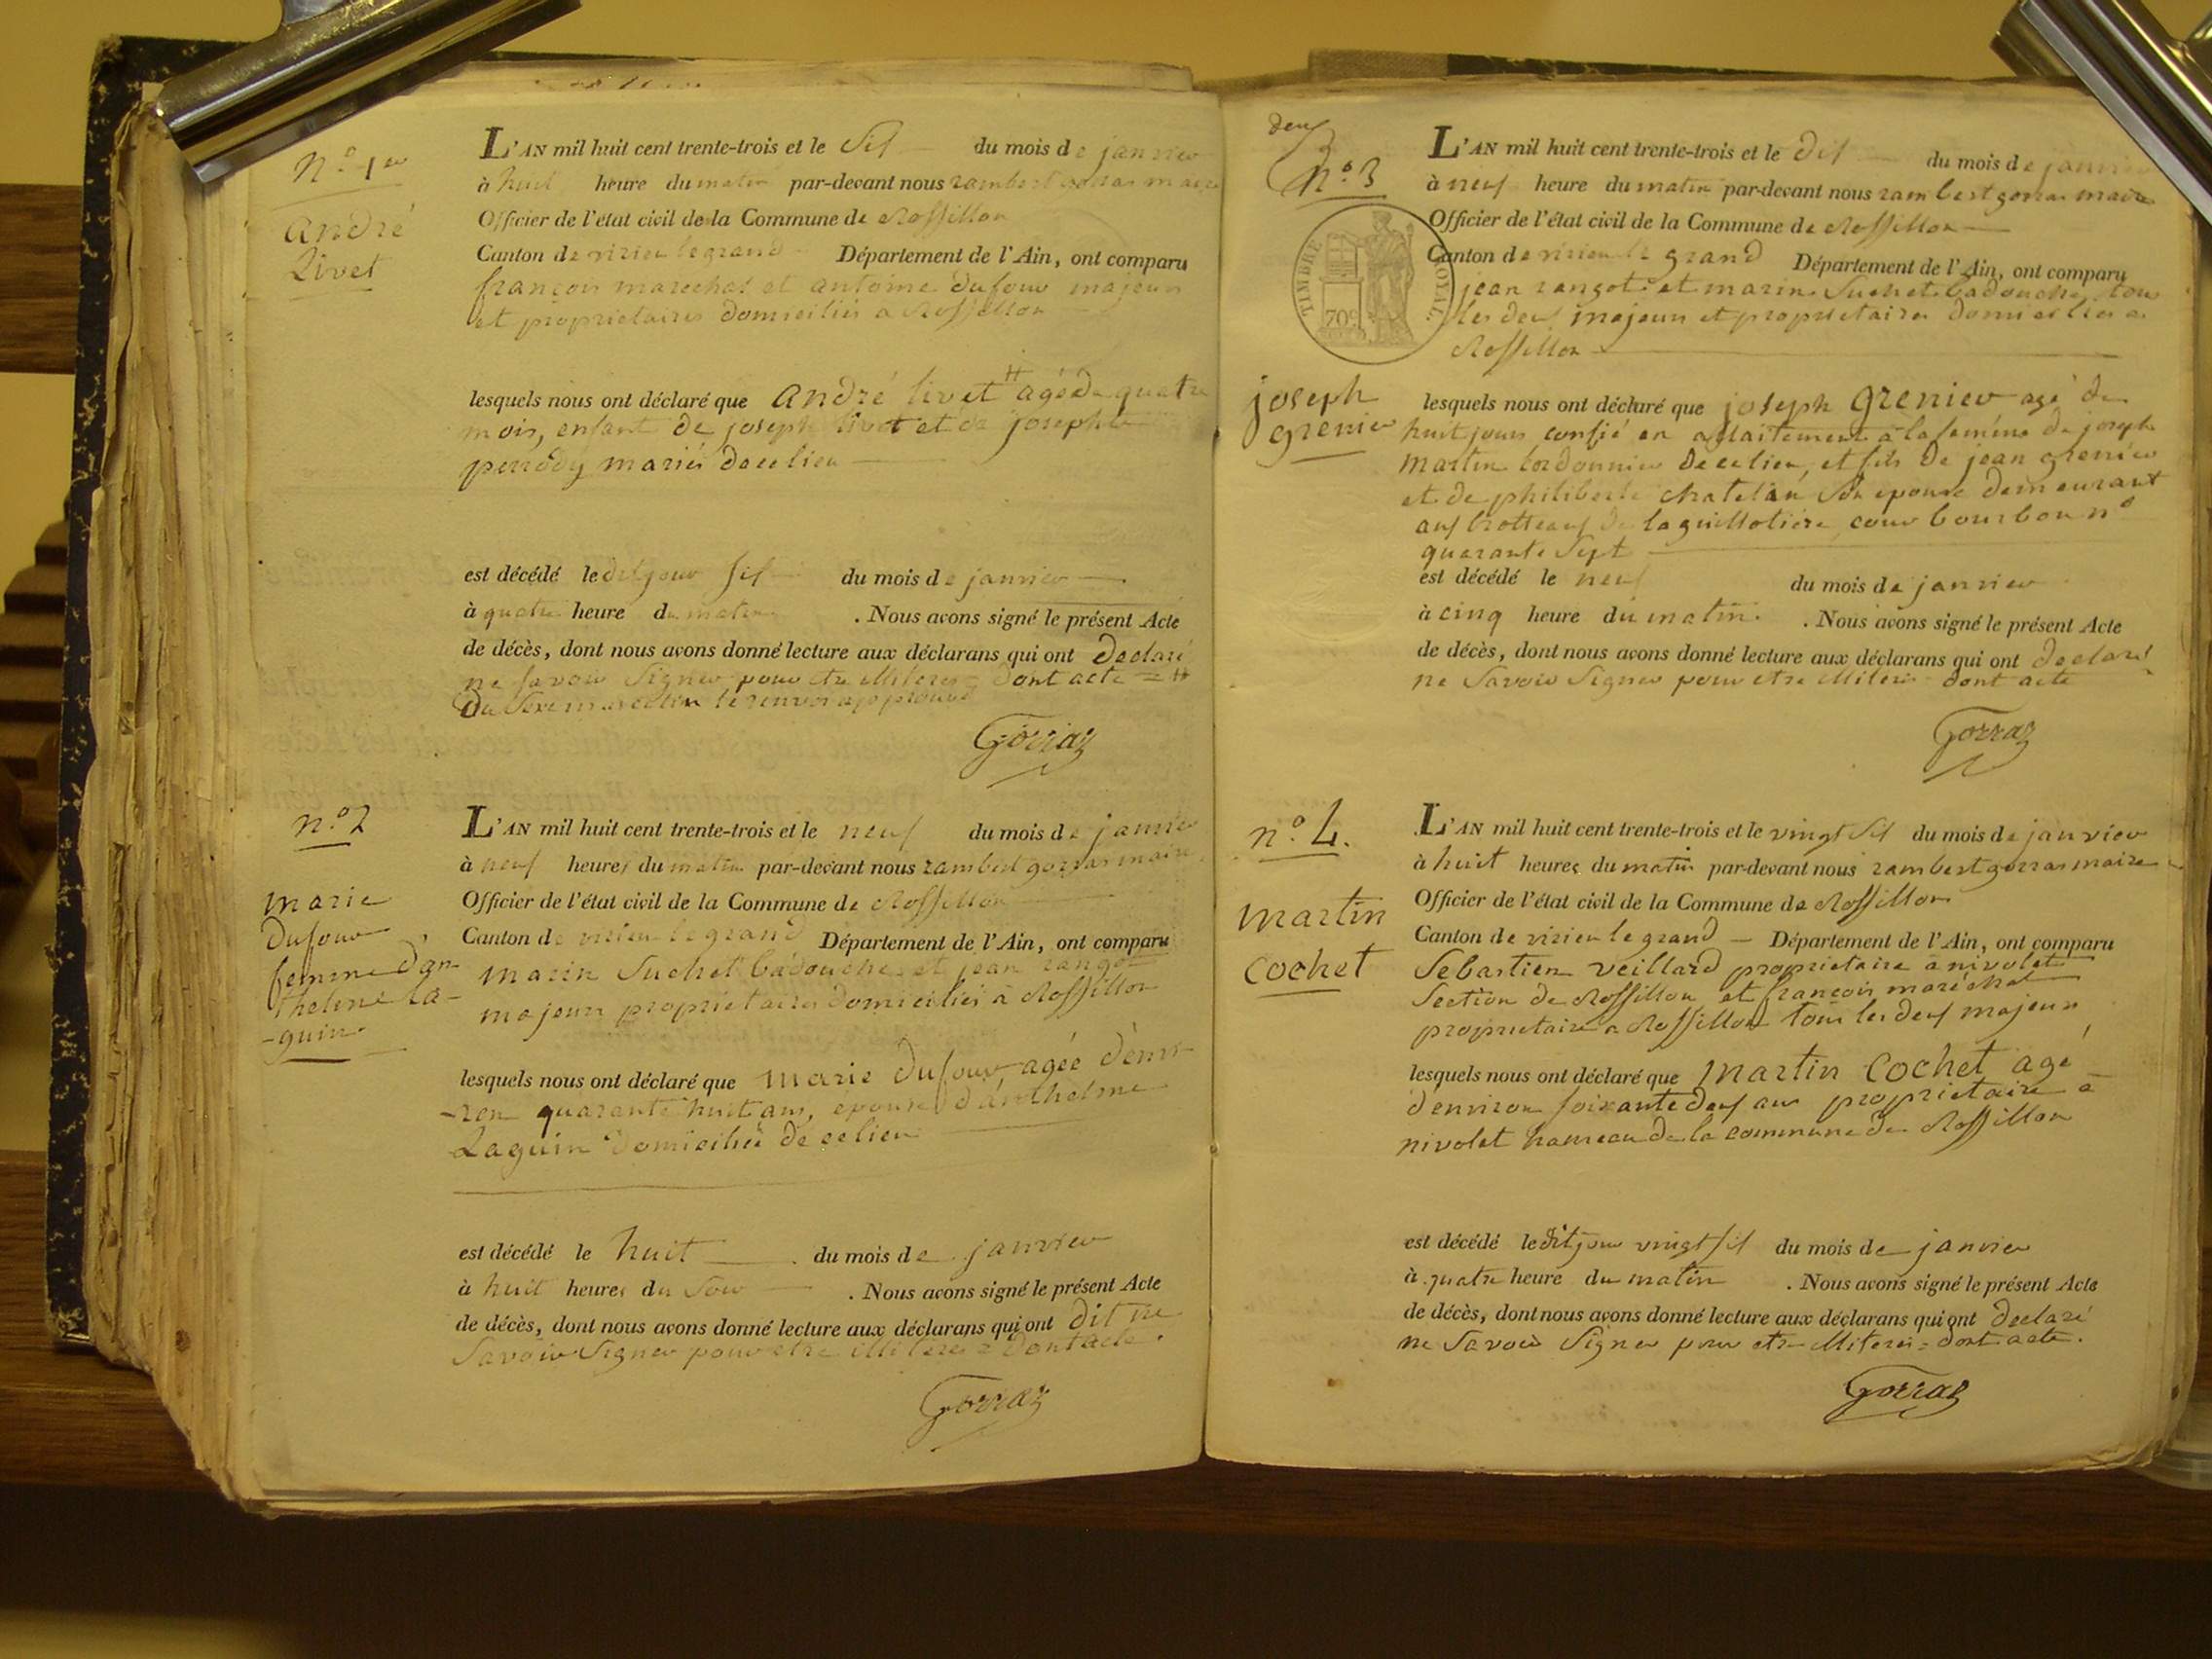 n.o 1er
andré
Livet
L'AN mil huit cent trente-trois et le Sif du mois de janvier
à huit heure du matin par-devant nous rambert gorras maire
Officier de l'état civil de la Commune de Rossillon
Canton de virieu le grand Département de l'Ain, ont comparu
françois marechal et antoine Dufour majeurs
et proprietaires domiciliés a Rossillon
lesquels nous ont déclaré que André livet # agé de quatre
mois, enfant de joseph livet et de josephte
perrody mariés de ce lieu
est décédé le dit jour Sif du mois de janvier
à quatre heure du matin . Nous avons signé le présent Acte
de décès, dont nous avons donné lecture aux déclarans qui ont declaré
ne Savoir Signer pour etre illiteres = dont acte = #
du Sexe masculin le renvoi approuvé
Gorraz
n.o 2
marie
Dufour
femme d'an-
thelme La-
-guin
L'AN mil huit cent trente-trois et le neuf du mois de janvier
à neuf heures du matin par-devant nous rambert gorras maire
Officier de l'état civil de la Commune de Rossillon
Canton de virieu le grand Département de l'Ain, ont comparu
marin Suchet badouche et jean rangot
majeurs proprietaires domiciliés à Rossillon
lesquels nous ont déclaré que marie Dufour agée d'envi-
-ron quarante huit ans, epouse d'anthelme
Laguin domiciliée de ce lieu
est décédé le huit du mois de janvier
à huit heures du Soir . Nous avons signé le présent Acte
de décès, dont nous avons donné lecture aux déclarans qui ont dit ne
Savoir Signer pour etre illiteres = dont acte.
Gorraz
deuf
n.o 3
joseph
grenier
TIMBRE ROYAL
70c
L'AN mil huit cent trente-trois et le dif du mois de janvier
à neuf heure du matin par-devant nous rambert gorras maire
Officier de l'état civil de la Commune de Rossillon
Canton de virieu le grand Département de l'Ain, ont comparu
jean rangot et marin Suchet badouche, tous
les deuf majeurs et proprietaires domiciliés a
Rossillon
lesquels nous ont déclaré que joseph grenier agé de
huit jours confié en allaitement à la femme de joseph
martin cordonnier de ce lieu, et fils de jean grenier
et de philiberte chatelan Son epouse demeurant
auf brotteauf de la guillotiere, cour bourbon n.o
quarante Sept
est décédé le neuf du mois de janvier
à cinq heure du matin . Nous avons signé le présent Acte
de décès, dont nous avons donné lecture aux déclarans qui ont declaré
ne Savoir Signer pour etre illiteres dont acte
Gorraz
n.o 4.
martin
cochet
L'AN mil huit cent trente-trois et le vingt Sif du mois de janvier
à huit heures du matin par-devant nous rambert gorras maire
Officier de l'état civil de la Commune de Rossillon
Canton de virieu le grand Département de l'Ain, ont comparu
Sebastien veillard proprietaire à nivolet
Section de Rossillon et françois maréchal
proprietaire a Rossillon tous les deuf majeurs
lesquels nous ont déclaré que martin cochet agé
d'environ soixante deuf ans proprietaire à
nivolet hameau de la commune de Rossillon
est décédé le dit jour vingt Sif du mois de janvier
à quatre heure du matin . Nous avons signé le présent Acte
de décès, dont nous avons donné lecture aux déclarans qui ont declaré
ne Savoir Signer pour etre illiteres = dont acte.
Gorraz